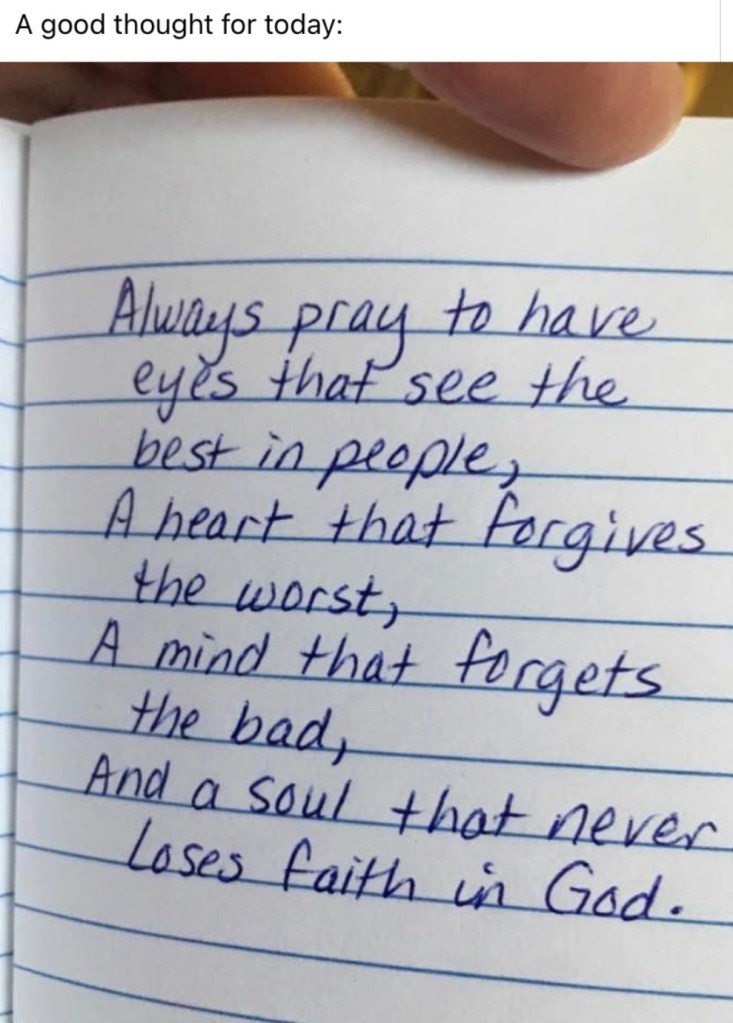 A good thought for today:
Always pray to have
eyes that see the
best in people,
A heart that forgives
the worst,
A mind that forgets
the bad,
And a soul that never
loses faith in God.